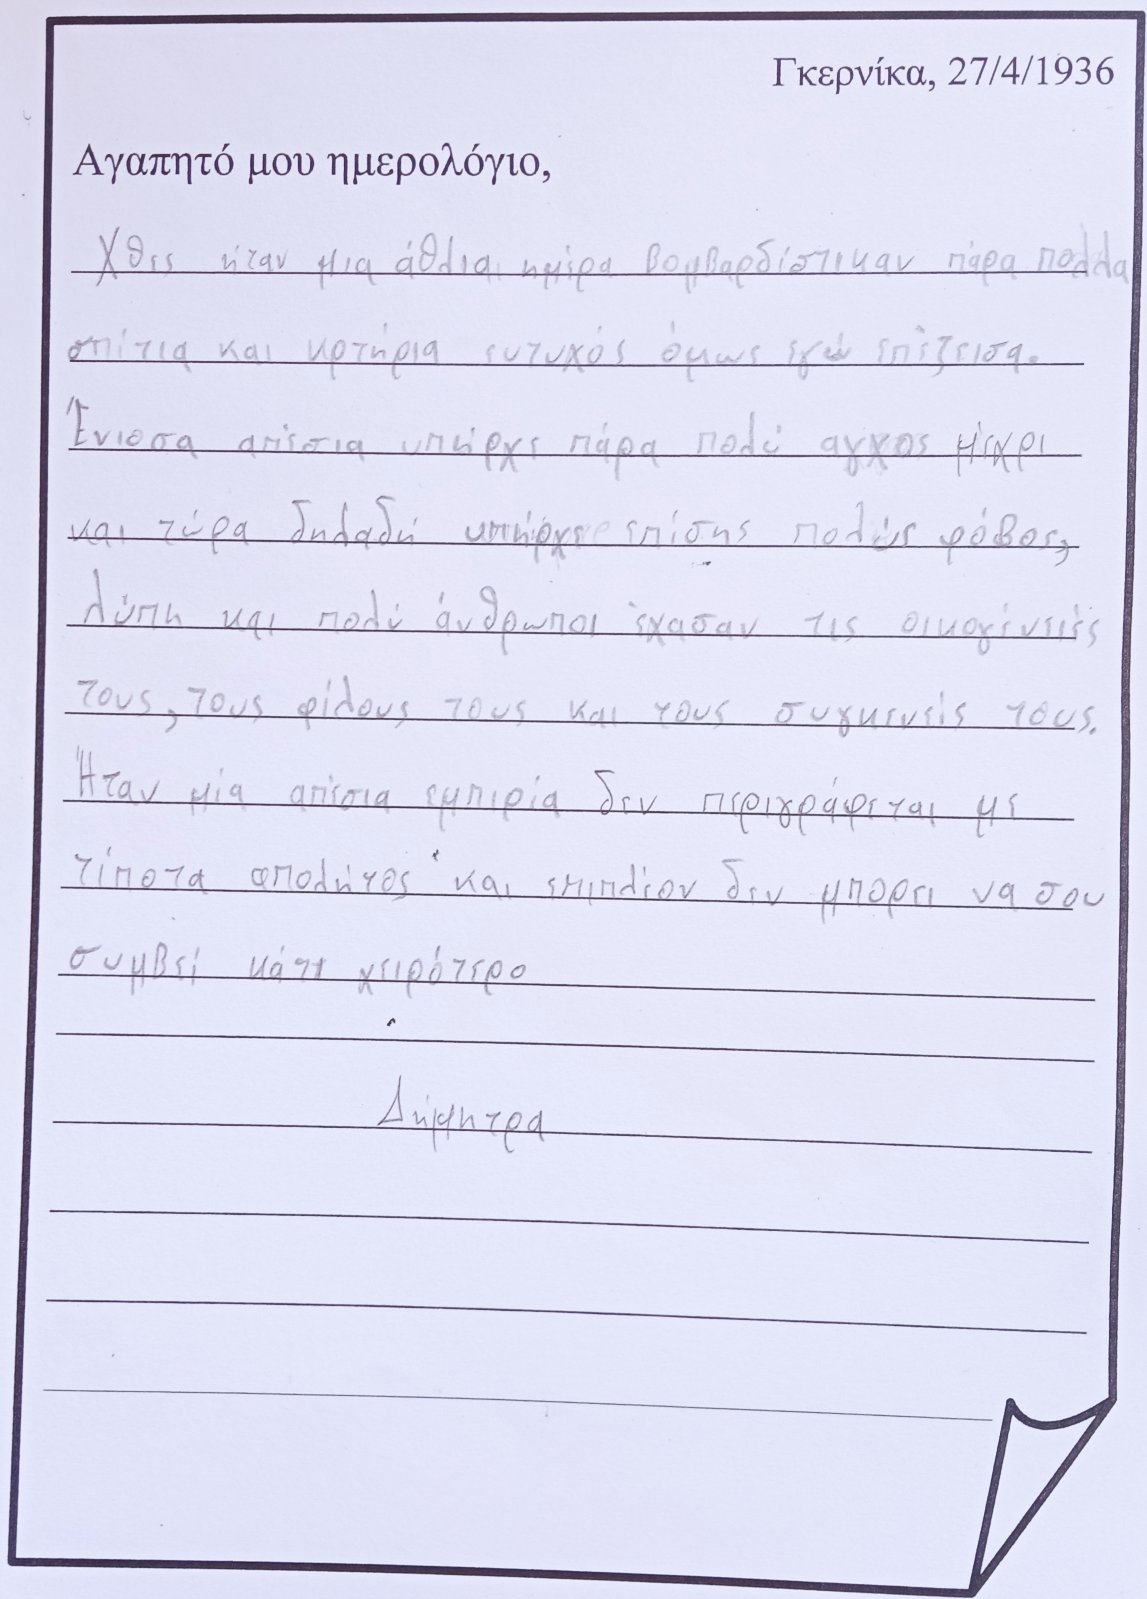 Γκερνίκα, 27/4/1936
Αγαπητό μου ημερολόγιο,
Χθες ήταν μια άθλια ημέρα βομβαρδίστικαν πάρα πολλα
σπίτια και κρτήρια ευτυχός όμως εγώ επέζεισα.
Ένιοσα απέσια υπήρχε πάρα πολύ αγχος μέχρι
και τώρα δηλαδή υπήρχε επίσης πολύς φόβος,
λύπη και πολύ άνθρωποι έχασαν τις οικογένειές
τους, τους φίλους τους και τους συγκενείς τους.
Ήταν μία απέσια εμπιρία δεν περιγράφεται με
τίποτα απολήτος και επιπλέον δεν μπορει να σου
συμβεί κάτι χειρότερο
Δήμητρα